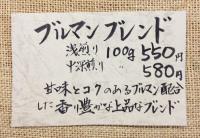 ブルマンブレンド
浅煎り 100g 550円
中深煎り 580円
甘味とコクのあるブルマン配合
した香り豊かな上品なブレンド